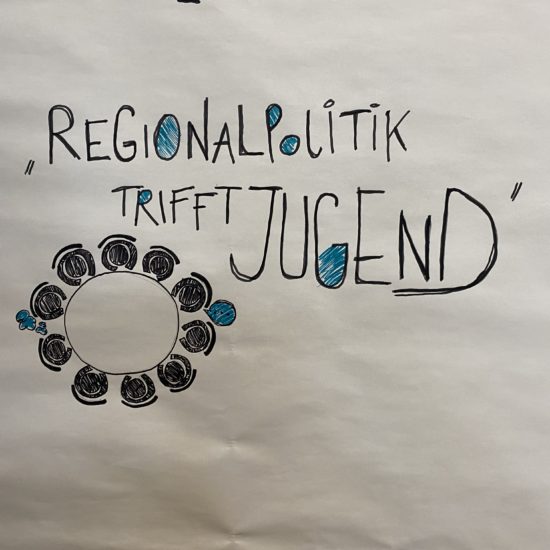 „REGIONALPOLITIK
TRIFFT JUGEND"